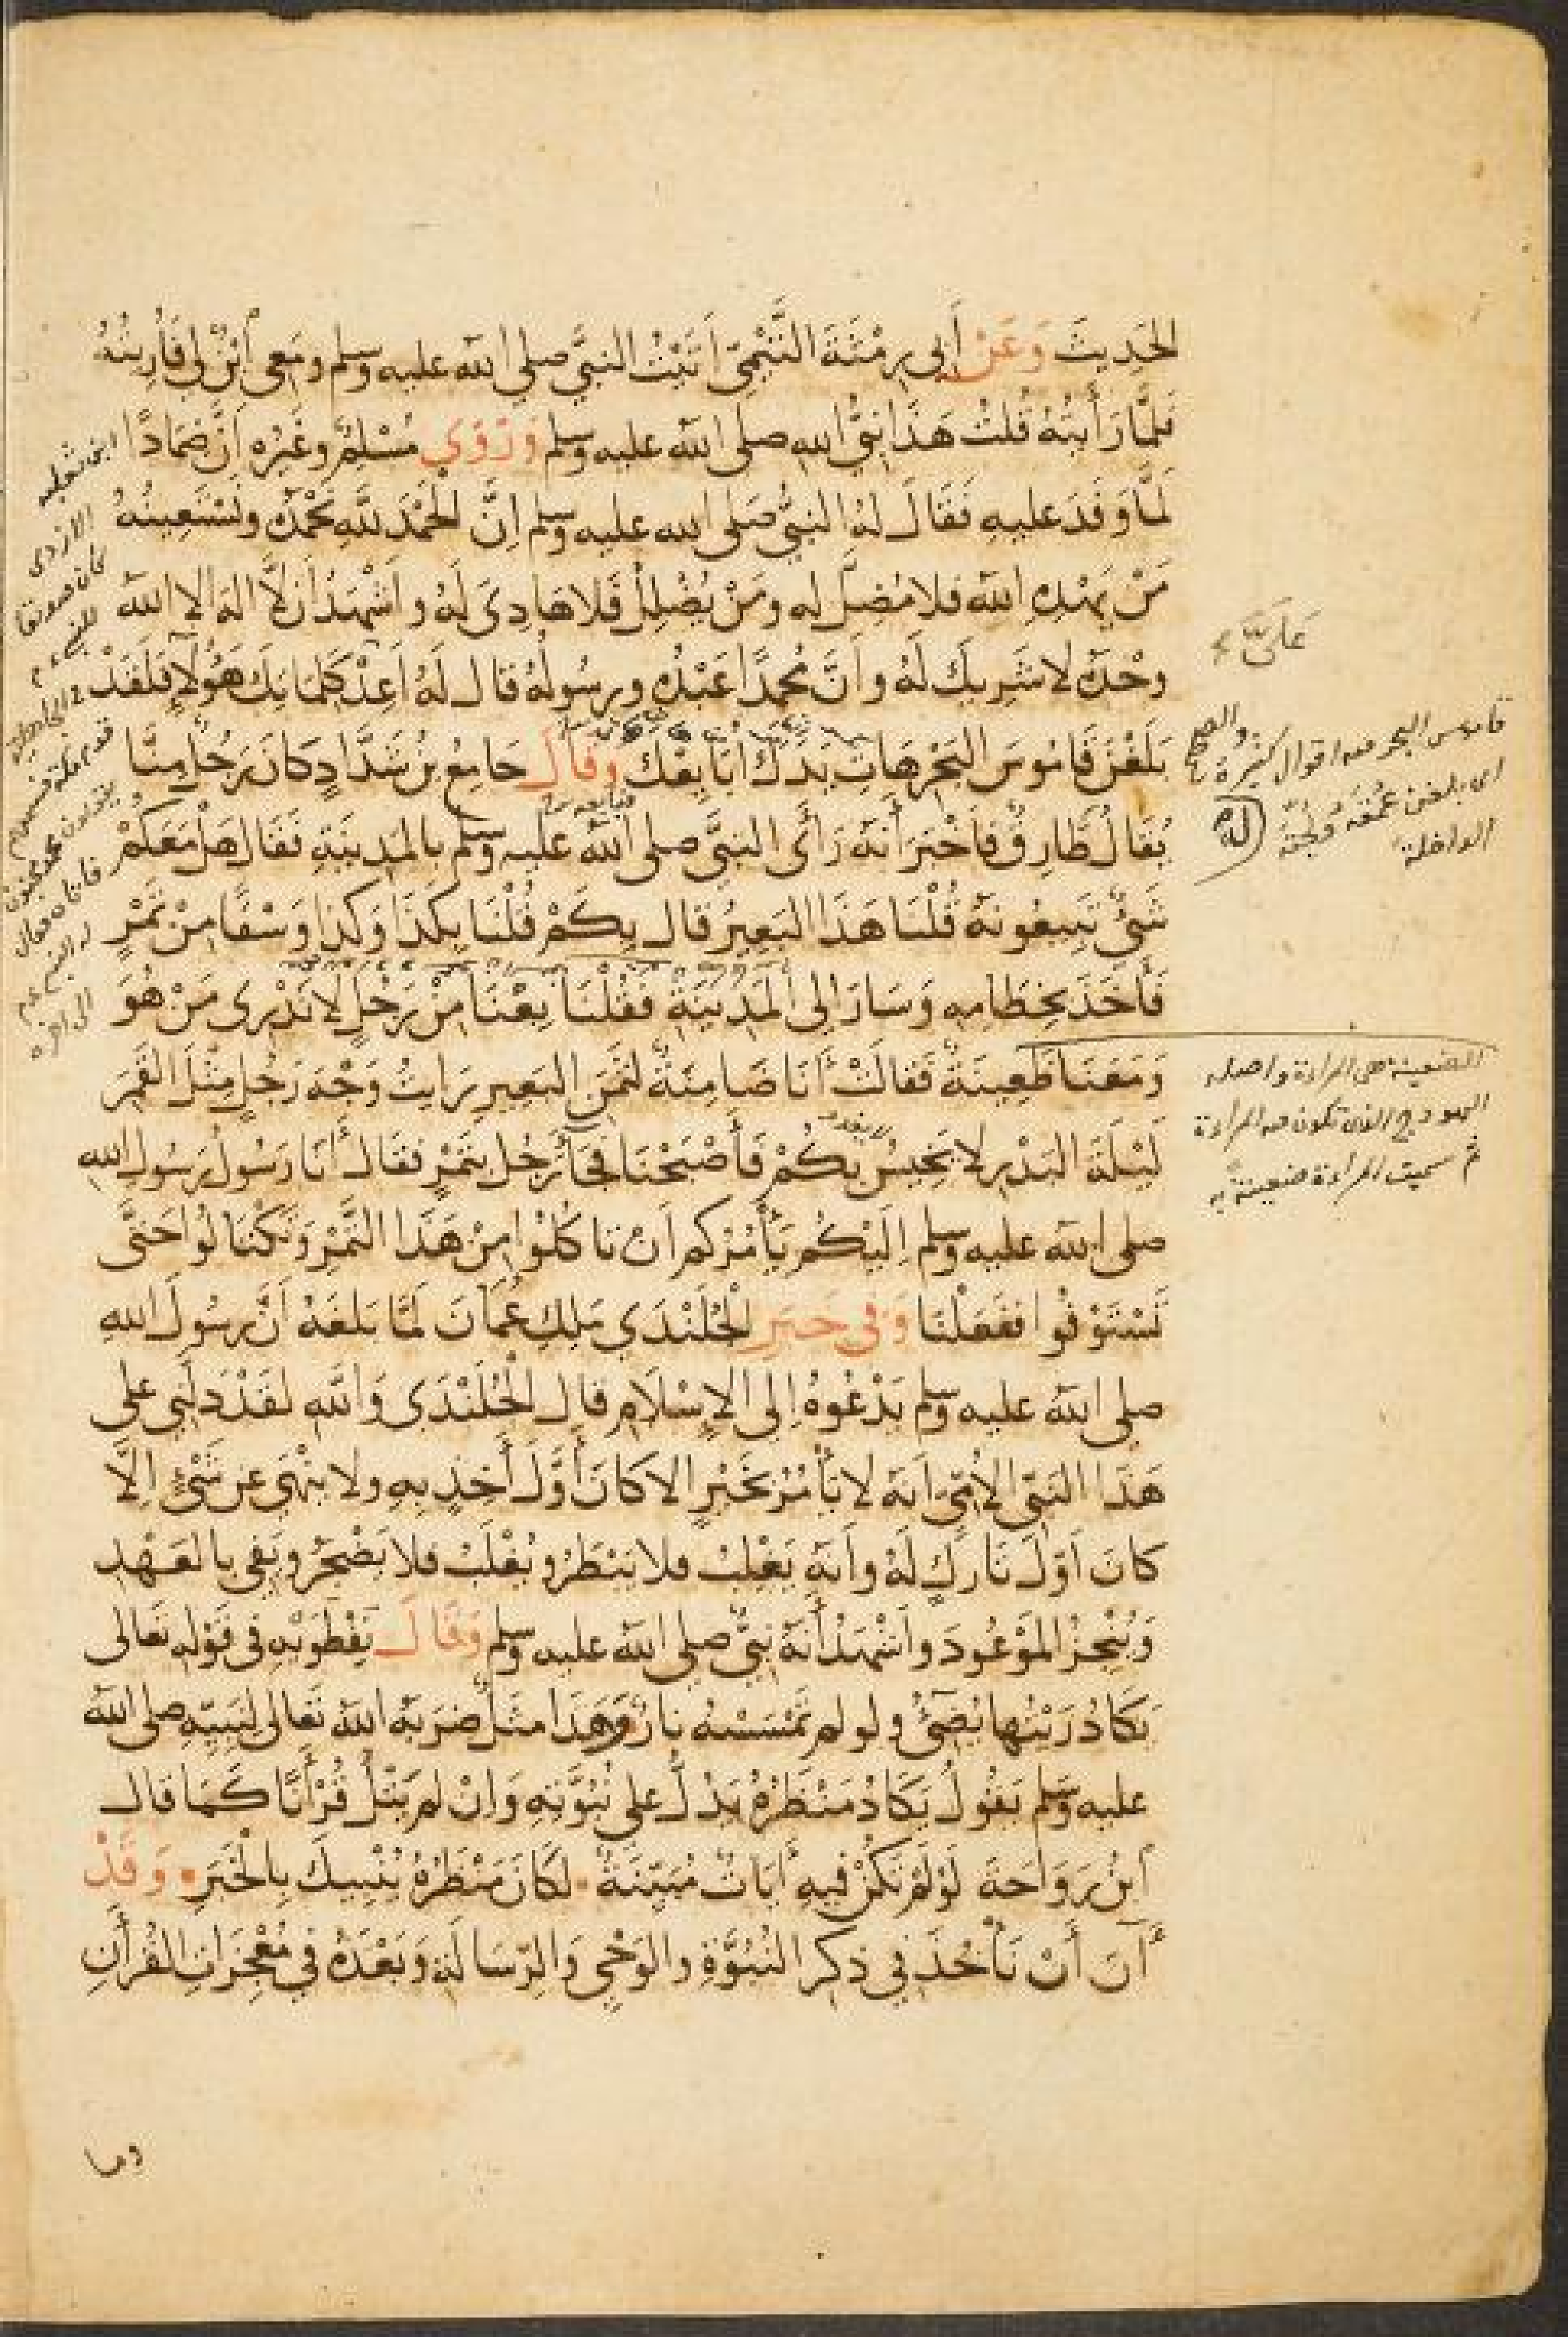 الحَدِيثَ وَعَنْ أَبِي رِمْثَةَ التَّيْمِيِّ أَتَيْتُ النبيَّ صلى الله عليه وسلم ومَعِى ابْنٌ لِي فَأُرِيتُهُ
فَلَمَّا رَأَيْتُهُ قُلتُ هَذَا نبيُّ الله صلى الله عليه وسلم وَرَوَى مُسْلِمٌ وغَيْرُه اِنَّ ضِمَادًا
لَمَّا وَفَدَ عليهِ فَقَالَ لهُ النبيُّ صَلى الله عليه وسلم اِنَّ الْحَمْدَ للهِ نَحْمَدُه ونَسْتَعِينُهُ
مَنْ يَهْدِهِ اللهُ فلا مُضِلَّ له ومَنْ يُضْلِلْ فَلا هَادِىَ لَهُ واَشْهَدُ اَنْ لَا اله الا الله
وحْدَهُ لا شَرِيكَ لَهُ واَنَّ مُحمدًا عَبْدُه ورسُولُهُ قال لَهُ اَعِدْ كَلمَاتِكَ هَؤُلَاءِ فَلَقَدْ
بَلَغْنَ قَامُوسَ البَحْرِ هَاتِ يَدَكَ اُبَايِعْكَ وقالَ جَامِعُ بنُ شَدَّادٍ كانَ رَجُلٌ مِنَّا
يُقَالُ طَارِقٌ فاَخْبَرَ أنهُ رَأَى النبيَّ صلى الله عليه وسلم بالمَدِينَةِ فقَالَ هَلْ مَعَكمْ
شَىْءٌ تَبِيعُونهُ قُلْنَا هَذَا البَعِيرُ قال بِكَمْ قُلْنَا بِكَذَا وَكَذا وَسْقًا مِنْ تَمْرٍ
فَأَخَذَ بخِطَامِهِ وَسَارَ الى المَدِينَةِ فَقُلْنَا بِعْنَا مِنْ رَجُلٍ لَا نَدْرِى مَنْ هُوَ
وَمَعَنَا ظَعِينَةٌ فَقالَتْ أَنَا ضَامِنَةٌ لثَمَنِ البَعِيرِ رَايتُ وَجْهَ رَجُلٍ مِثْلَ القَمَرَ
لَيْلَةَ البَدْرِ لا يَخِيسُ بِكُمْ فَأَصْبَحْنَا فجَآءَ رَجُلٌ بتَمْرٍ فقَالَ أَنَا رَسُولُ رَسُولِ الله
صلى الله عليه وسلم اِلَيْكُم يَأْمُرُكم اَنْ تاكُلُوا مِنْ هَذَا التَّمْرِ وَتَكْتَالُوا حَتَّى
تَسْتَوْفُوا فَفَعَلْنَا وَفى خبَرِ الجُلَنْدَي مَلِكِ عُمَانَ لَمَّا بَلغَهُ اَنَّ رسُولَ الله
صلى الله عليه وسلم يَدْعُوهُ اِلى الاِسْلَامِ قال الجُلَنْدَى وَاللهِ لقَدْ دَلَّنِي على
هَذَا النَبِيِّ الاُمِّيِّ اَنه لا يَأْمُرُ بخَيْرٍ الا كَانَ أوَّلَ أَخِذٍ بهِ ولا يَنْهَى عن شَىْءٍ اِلَّا
كانَ اَوّلَ تَارِكٍ لَهُ وأَنه يَغْلِبُ فلا يَبْطَرُ ويُغْلَبُ فلا يَضْجَرُ ويَفِى بالعَهْدِ
وَيُنْجِزُ المَوْعُودَ واَشْهَدُ أنهُ نبيٌّ صلى الله عليه وسلم وَقَالَ نِفْطَوَيْهِ فى قَوْله تَعَالى
يَكَادُ زَيْتُها يُضِىءُ ولو لم تَمْسَسْهُ نارٌ وهَذَا مثَلٌ ضَرَبَهُ اللهُ تَعَالى لِنَبِيِّهِ صلى الله
عليه وسَلم يَقُولُ يَكَادُ مَنْظَرُهُ يَدُلُّ على نُبُوَّتِهِ وَاِنْ لم يَتْلُ قُرْأَنًا كَمَا قال
اَبْنُ رَوَاحَةَ لَوْ لَمْ تكُنْ فيهِ أيَاتٌ مُبَيِّنَةٌ لكَانَ مَنْظَرُهُ يُنْبِيكَ بِالْخَبَرِ وَقَدْ
أَنَ أَنْ نَأْخُذَ فِي ذِكرِ النُّبُوَّةِ والوَحْيِ وَالرِّسَالَة وَبَعْدَهُ فِي مُعْجِزَاتِ القُرْأَنِ
وما
قاموس البحر فيه اقوال كثيرة والصحيح
اى بلغن عمقه ولجته
الداخلة
الضعينة هى المراءة واصله
الهودج الذى تكون فيه المراءة
ثم سميت المراءة ضعينة به
ابن ثعلبه
الازدى
كان صديقا
للنبى
فى الجاهلية
قدم مكة فسمعهم
يقولون محمد مجنون
الى اخره